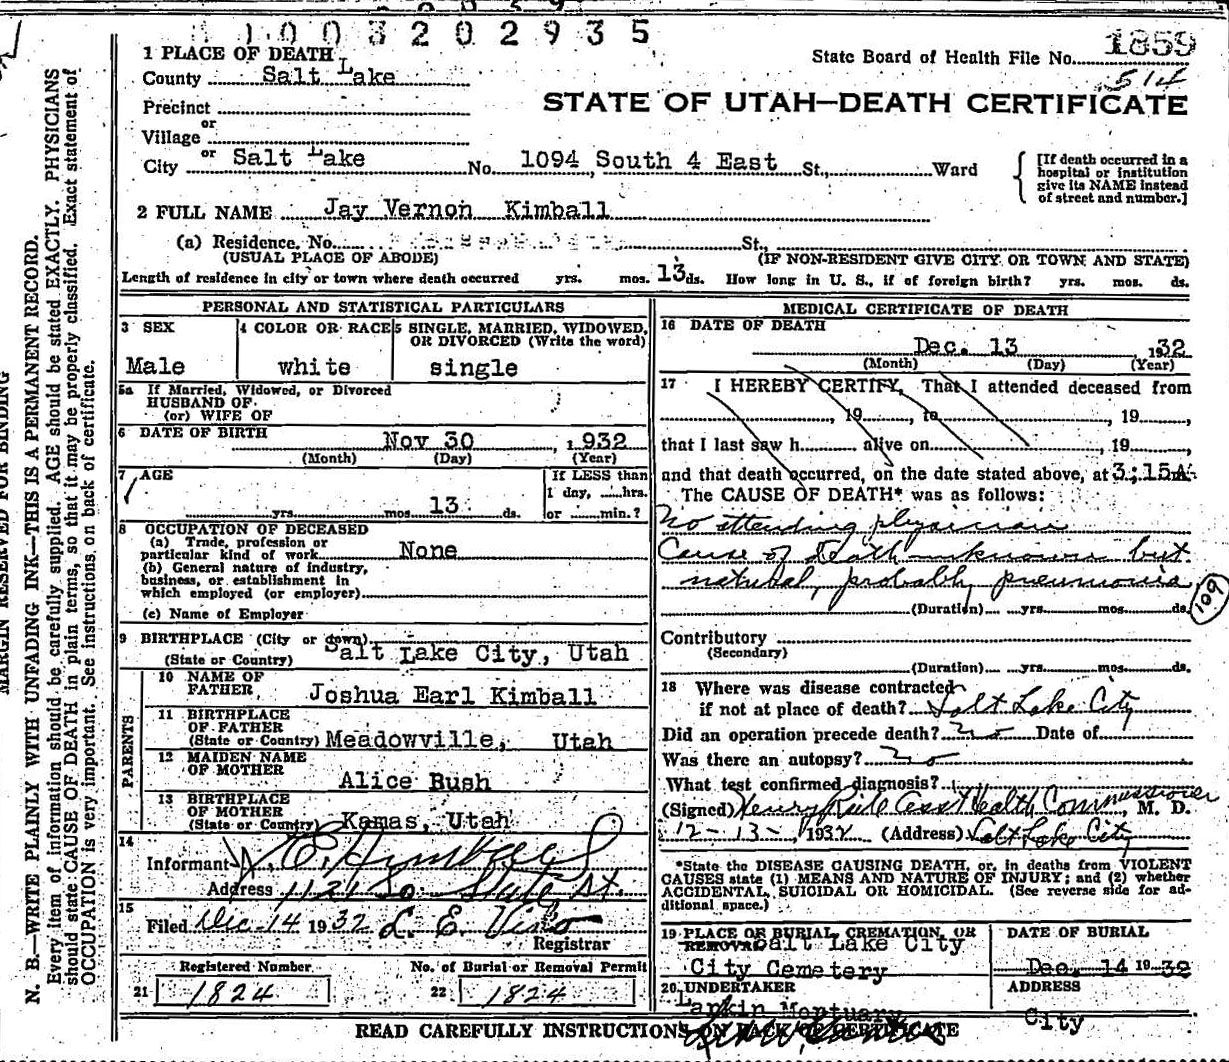 1003202935
State Board of Health File No. 1859
514
1 PLACE OF DEATH
County Salt Lake
STATE OF UTAH—DEATH CERTIFICATE
Precinct
or
Village
or
City Salt Lake No. 1094 South 4 East St., Ward
[If death occurred in a hospital or institution give its NAME instead of street and number.]
2 FULL NAME Jay Vernon Kimball
(a) Residence, No. St.,
(USUAL PLACE OF ABODE) (IF NON-RESIDENT GIVE CITY OR TOWN AND STATE)
Length of residence in city or town where death occurred yrs. mos. 13 ds. How long in U. S., if of foreign birth? yrs. mos. ds.
PERSONAL AND STATISTICAL PARTICULARS
3 SEX 4 COLOR OR RACE 5 SINGLE, MARRIED, WIDOWED,
OR DIVORCED (Write the word)
Male white single
5a If Married, Widowed, or Divorced
HUSBAND OF
(or) WIFE OF
6 DATE OF BIRTH Nov 30, 1932
(Month) (Day) (Year)
7 AGE If LESS than
1 day, hrs.
yrs. mos. 13 ds. or min.?
8 OCCUPATION OF DECEASED
(a) Trade, profession or
particular kind of work None
(b) General nature of industry,
business, or establishment in
which employed (or employer)
(c) Name of Employer
9 BIRTHPLACE (City or town)
(State or Country) Salt Lake City, Utah
PARENTS
10 NAME OF
FATHER Joshua Earl Kimball
11 BIRTHPLACE
OF FATHER
(State or Country) Meadowville, Utah
12 MAIDEN NAME
OF MOTHER Alice Bush
13 BIRTHPLACE
OF MOTHER
(State or Country) Kamas, Utah
14
Informant
Address 1121 So State St.
15
Filed Dec 14 1932 L. E. Viko
Registrar
Registered Number No. of Burial or Removal Permit
21 1824 22 1824
MEDICAL CERTIFICATE OF DEATH
16 DATE OF DEATH
Dec. 13 1932
(Month) (Day) (Year)
17 I HEREBY CERTIFY, That I attended deceased from
, 19 to , 19
that I last saw h alive on , 19
and that death occurred, on the date stated above, at 3:15A.
The CAUSE OF DEATH* was as follows:
No attending physician
Cause of death unknown but
natural, probably pneumonia
109
(Duration) yrs. mos. ds.
Contributory
(Secondary)
(Duration) yrs. mos. ds.
18 Where was disease contracted
if not at place of death? Salt Lake City
Did an operation precede death? no Date of
Was there an autopsy? no
What test confirmed diagnosis?
(Signed) Henry Asst Health Commissioner, M. D.
12-13-, 1932 (Address) Salt Lake City
*State the DISEASE CAUSING DEATH, or, in deaths from VIOLENT
CAUSES state (1) MEANS AND NATURE OF INJURY; and (2) whether
ACCIDENTAL, SUICIDAL OR HOMICIDAL. (See reverse side for ad-
ditional space.)
19 PLACE OF BURIAL, CREMATION, OR DATE OF BURIAL
REMOVAL Salt Lake City
City Cemetery Dec. 14 1932
20 UNDERTAKER ADDRESS
Larkin Mortuary City
READ CAREFULLY INSTRUCTIONS ON BACK OF CERTIFICATE
MARGIN RESERVED FOR BINDING
N. B.—WRITE PLAINLY WITH UNFADING INK—THIS IS A PERMANENT RECORD.
Every item of information should be carefully supplied. AGE should be stated EXACTLY. PHYSICIANS
should state CAUSE OF DEATH in plain terms, so that it may be properly classified. Exact statement of
OCCUPATION is very important. See instructions on back of certificate.